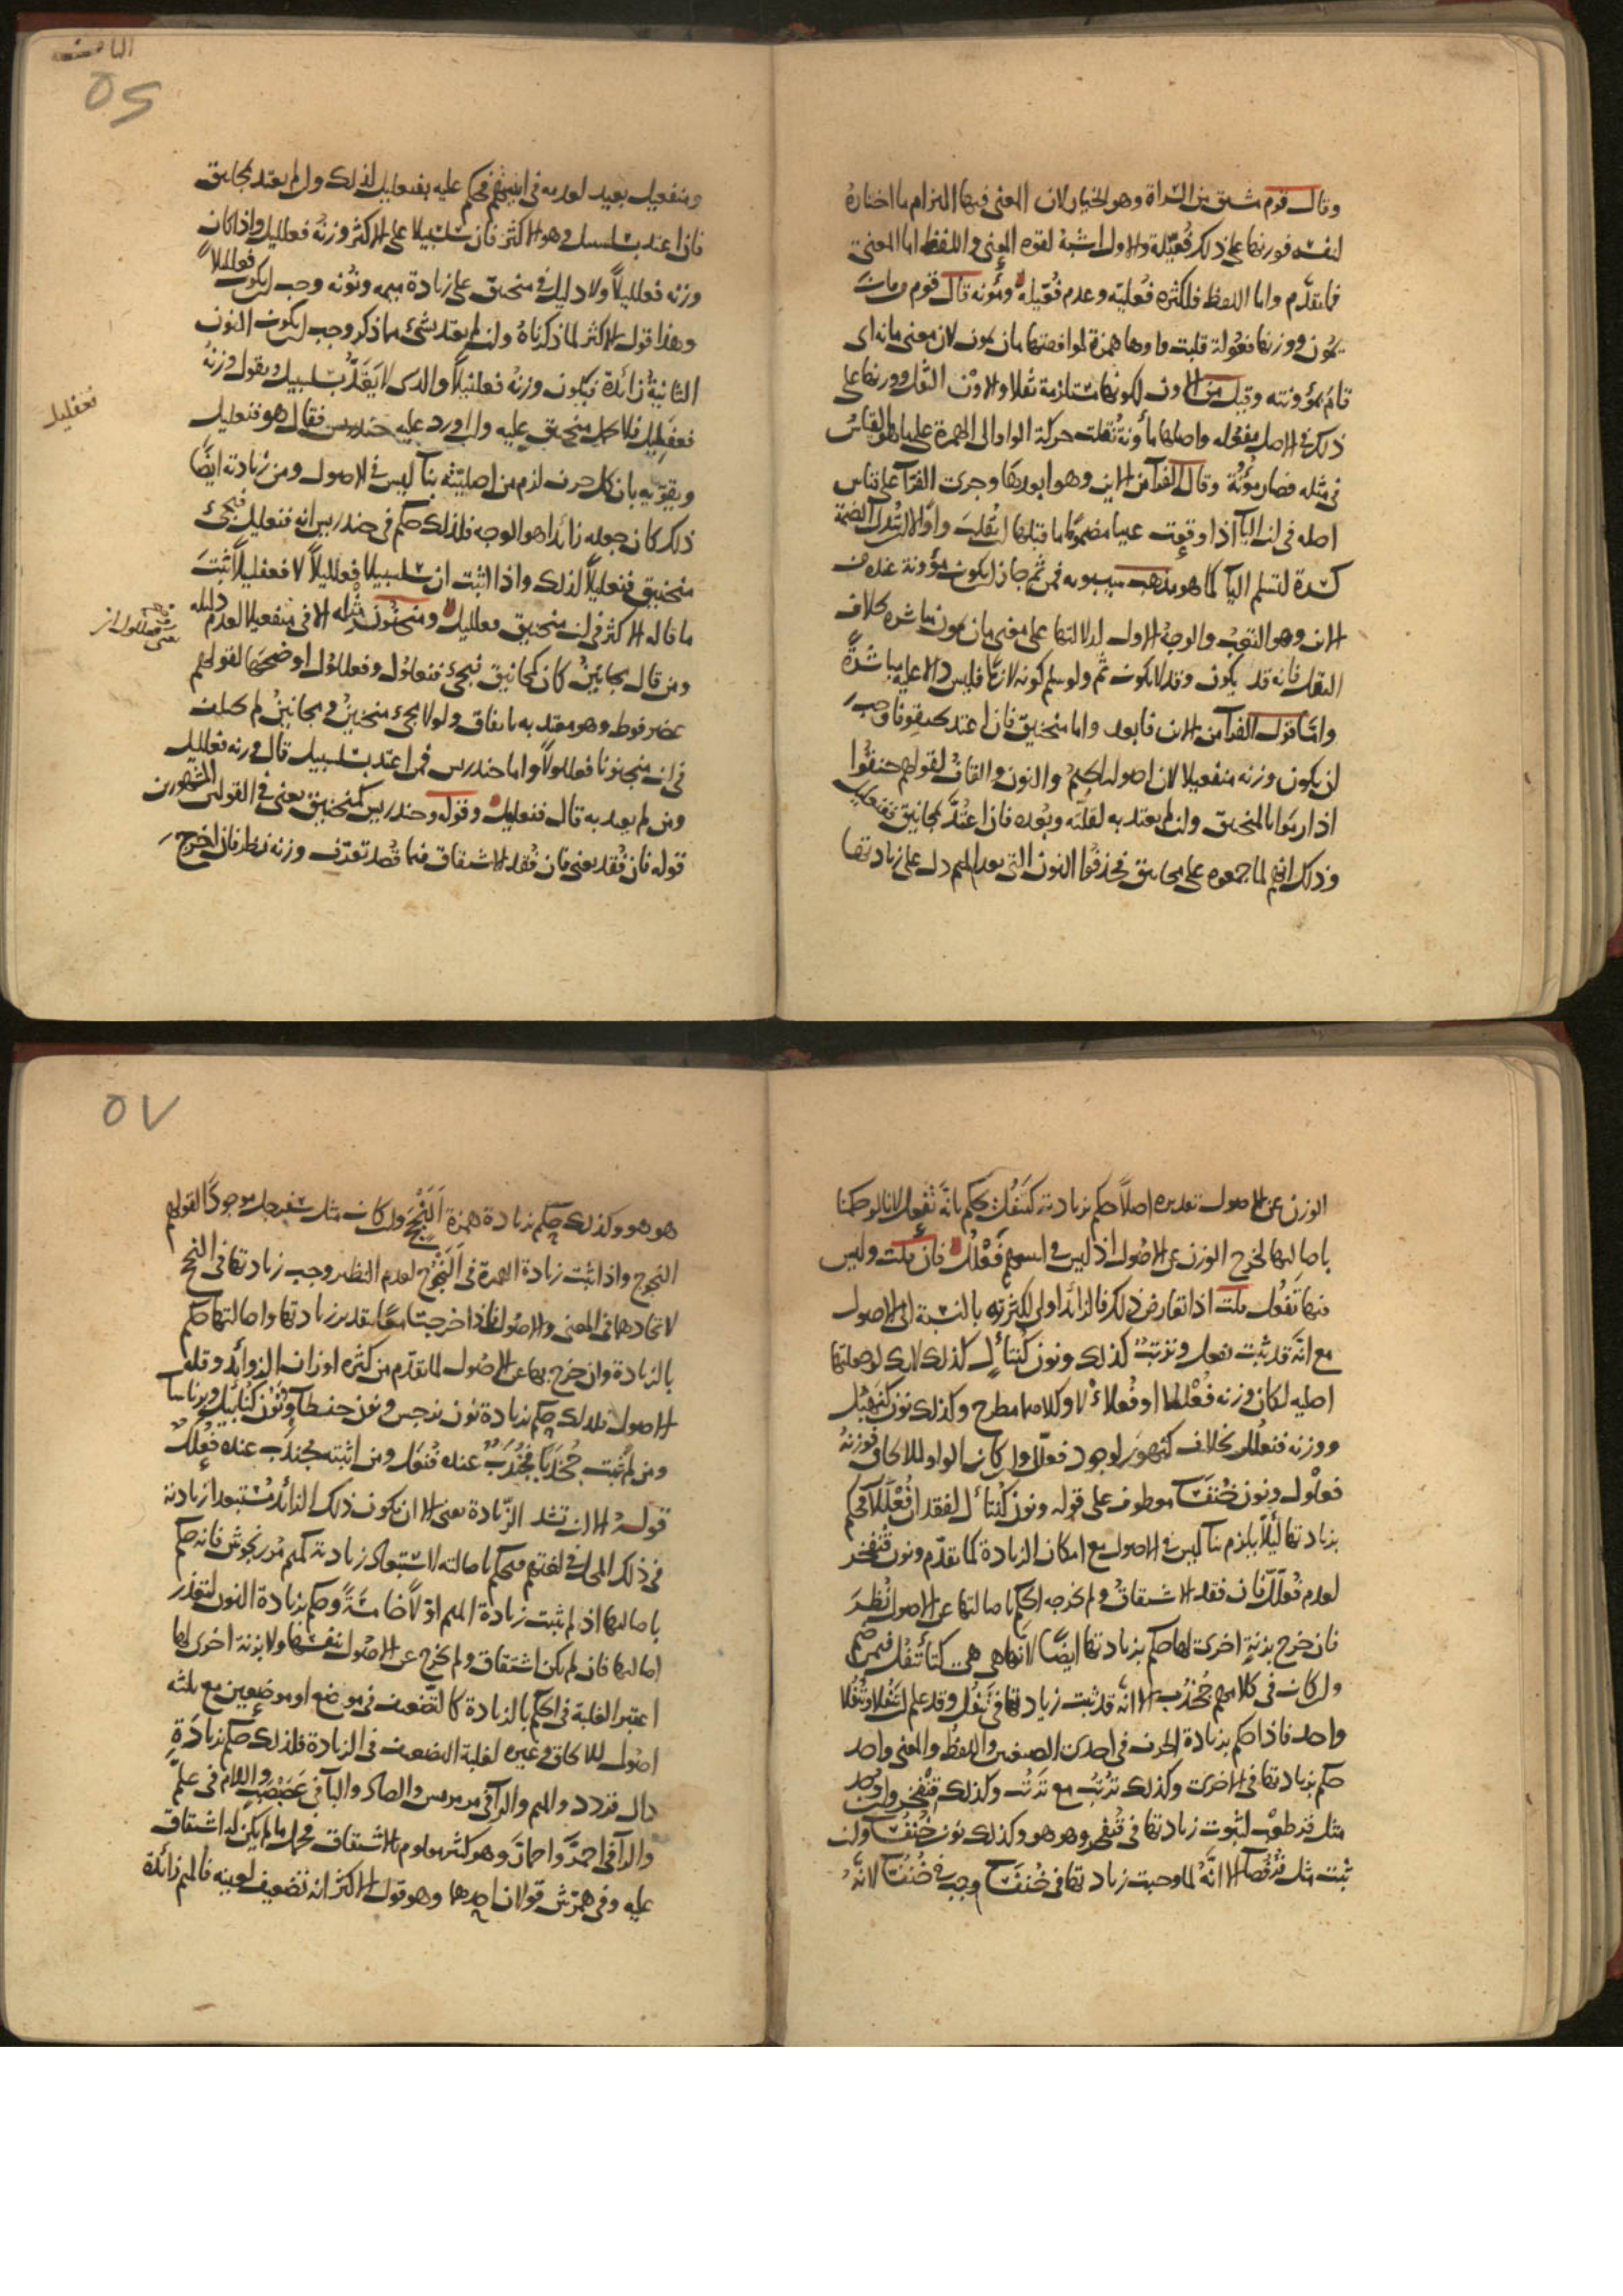 وقال قوم مشتق من السراة وهو الخيار لان المعنى فيها التزام ما اختاره
لنفسه فوزنها على ذلك فُعّيلة والاول اشبهُ لقوه المعنى واللفظ اما المعنى
فما تقدّم واما اللفظ فلكثره فعليّه وعدم فعّيله ومؤنه قال قوم من مانَ
يمُون ووزنها فعُولة قلبت واوها همزة لموافقتها مان يمون لان معنى مانه اى
قام بمؤونته وقيل من الاون لكونها مستلزمة ثقلا والاوْن الثقل ووزنها على
ذلك فى الاصل مفعُله واصلها مأونة نقلت حركة الواو الى الهمزة على ما هو القياس
فى مثله فصار مؤُنة وقال الفرآ من الاين وهو ابعدها وجرى الفرّآ على قياس
اصله فى ان اليآ اذا وقعت عينا مضمومًا ما قبلها انقلبَت واوًا لا ان تبدل الضمة
كسرة لتسلم اليآ كما هو مذهب سيبويه فمن ثم جاز ان يكون مؤونة عنده من
الاين وهو التعب والوجهُ الاول لدلالتها على معنى مان يمون مباشره بخلاف
الثقل فانه قد يكون وقد لا يكون ثم ولو سلم كونه لازمًا فليس دالا عليه مباشرةً
وامّا قول الفرآ من الاين فابعد واما منجنيق فان اعتد بجنقونا وجبَ
ان يكون وزنه منفعيلا لان اصولها الجيمُ والنون والقافُ لقولهم جنقُوا
اذا رمَوا بالمنجنيق وان لم يعتد به لقلته وبُعده فان اعتُدَّ بمجانيق ففنعليل
وذلك انهم لما جمعوه على مجانيق فحذفُوا النون التى بعد الميم دل على زيادتها
الثامنه
٥٦
ومنفعيل بعيد لعدمه فى ابنيتهم فحكم عليه بفنعليل لذلك وان لم يعتد بمجانيق
فان اعتد بسلسبيل وهو الاكثر فان سلسبيلا على الاكثر وزنهُ فعلليل واذا كان
وزنه فعلليلاً ولا دليل فى منجنيق على زيادة ميمه ونونه وجب ان يكون فعلليلاً
وهذا قول الاكثر لما ذكرناهُ وان لم يعتد بشئ مما ذكر وجب ان يكون النون
الثانيةُ زائدة فيكون وزنهُ فعلنيلاً والذى لا يعتَدّ بسلسبيل ويقول وزنهُ
فعفليل فلا يحمل منجنيق عليه وان اورد عليه خندريس فقال هو فنعليل
نعفليل
ويقوّيه بان كل حرف لزم من اصليّته بنآ ليس فى الاصول ومن زيادته ايضًا
ذلك كان جعله زائدا هو الوجه فلذلك حكم فى خندريس انه فنعليل فيجئ
منجنيق فنعليلاً لذلك واذا اثبت ان سلسبيلا فعلليلاً لا فعفليلاً ثبتَ
ما قاله الاكثر فى ان منجنيق فعلليل ومنجنُون مثله الا فى منفعيلا لعدم دليله
ومن قال مجانينُ كان كمجانيق فيجئ فنعلُول وفعللُول اوضحها لقولهم
عضرفوط وهو معتد به باتفاق ولولا مجئ منجنين ومجانينُ لم يختلف
فى ان منجنونا فعللولاً واما خندريس فمن اعتد بسلسبيل قال وزنه فعلليل
ومن لم يعتد به قال فنعليل وقوله وخندريس كمنجنيق يعنى فى القولين المشهورين
قوله فان فُقد يعنى فان فُقد الاشتقاق فيما قُصد تعرّف وزنه نظر فان اخرجَ
الوزن عن الاصول تقديره اصلاً حكم بزيادته كتتفُل يحكم بانّه تَفعُل لانا لو حكمنا
باصالتها لخرج الوزن عن الاصُول اذ ليس فى اسمهم فَعْلُل فان قلت وليس
فيها تَفعُل قلت اذا تعارض ذلك فالزائد اولى لكثرته بالنسبة الى الاصول
مع انّه قد ثبت تفعل وتَرتبُ كذلك ونون كُنتأل كذلك لانك لو جعلتها
اصليه لكان وزنه فُعْللا او فُعلاءْلا وكلاهما مطرح وكذلك نون كنَهبُل
ووزنه فنعلُل بخلاف كنهوَر لوجود فعلّل وان كان الواو للالحاق فوزنهُ
فعلْوَل ونون خُنفَسآ معطوف على قوله ونون كنتأل لفقدان فُعْلَلآ فحكم
بزيادتها ليلا يلزم بنآ ليس فى الاصول مع امكان الزيادة كما تقدّم ونون قُنفخر
لعدم فُعلَلّ فان فقد الاشتقاقُ ولم يخرجه الحكم باصالتها عن الاصول نُظِرَ
فان خرج بزنةٍ اخرى لها حكم بزيادتها ايضًا لانها هى هى كتاء تتفُل فيمن ضم
وان كان فى كلامهم جُخدُب الا انّه قد ثبت زيادتها فى تَتفُل وقد علم ان تَتفُلا وتُتفُلا
واحد فاذا حكم بزيادة الحرف فى احدى الصيغتين واللفظُ والمعنى واحد
حكم بزيادتها فى الاخرى وكذلك تُرتُبُ مع تَرتُب وكذلك قنفخر وان وجد
مثل قرطعْب لثبوت زيادتها فى قُنفخر وهو هو وكذلك نون خُنفُسآ وان
ثبت مثل قُرفُصآ الا انّهُ لما وجبت زيادتها فى خُنفَسآ وجب فى خُنفُسآ لانّهُ
٥٧
هو هو وكذلك حكم بزيادة همزة اَلَنْجَج وان كان مثل سفرجل موجودًا لقولهم
النجوج واذا ثبت زيادة الهمزة فى اَلنجُوج لعدم النظير وجب زيادتها فى النجج
لاتحادهما فى المعنى والاصُول فاذا خرجتا معًا بتقدير زيادتها واصالتها حكم
بالزيادة وان خرج بها عن الاصُول لما تقدّم من كثره اوزان الزوائد وقله
الاصول فلذلك حكم بزيادة نون نرجس ونون حنطآو ونُون كنابيل وبرناسآ
ومن لم يثبت جُخدَبًا فجُندَبٌ عنده فُنعَل ومن اثبته فجندَب عنده فُعلَل
قولهُ الا ان تشذ الزّيادة يعنى الا ان يكون ذلك الزائد مُستبعدا زيادته
فى ذلك المحل فى لغتهم فيحكم باصالته لاستبعاد زيادته كميم مَرزنجوش فانه حكم
باصالتها اذ لم تثبت زيادة الميم اوّلاً خامسَةً وحكم بزيادة النون لتعذر
اصالتها فان لم يكن اشتقاق ولم يخرج عن الاصُول بنفسها ولا بزنة اخرى لها
اعتبر الغلبة فى الحكم بالزيادة كالتضعيف فى موضع او موضعين مع ثلثه
اصُول للالحاق وغيره لغلبة التضعيف فى الزيادة فلذلك حكم بزيادَةِ
دال قردد والميم والرآ فى مرمريس والصاد والبآ فى عَصَبْصَبٍ واللام فى علَّم
والرآ فى احمرَّ واحمارَّ وهو كثير معلوم بالاشتقاق فحمل ما لم يكن له اشتقاق
عليه وفى همّرش قولان احدهما وهو قول الاكثر انه تضعيف لعينه فالميم زائدة